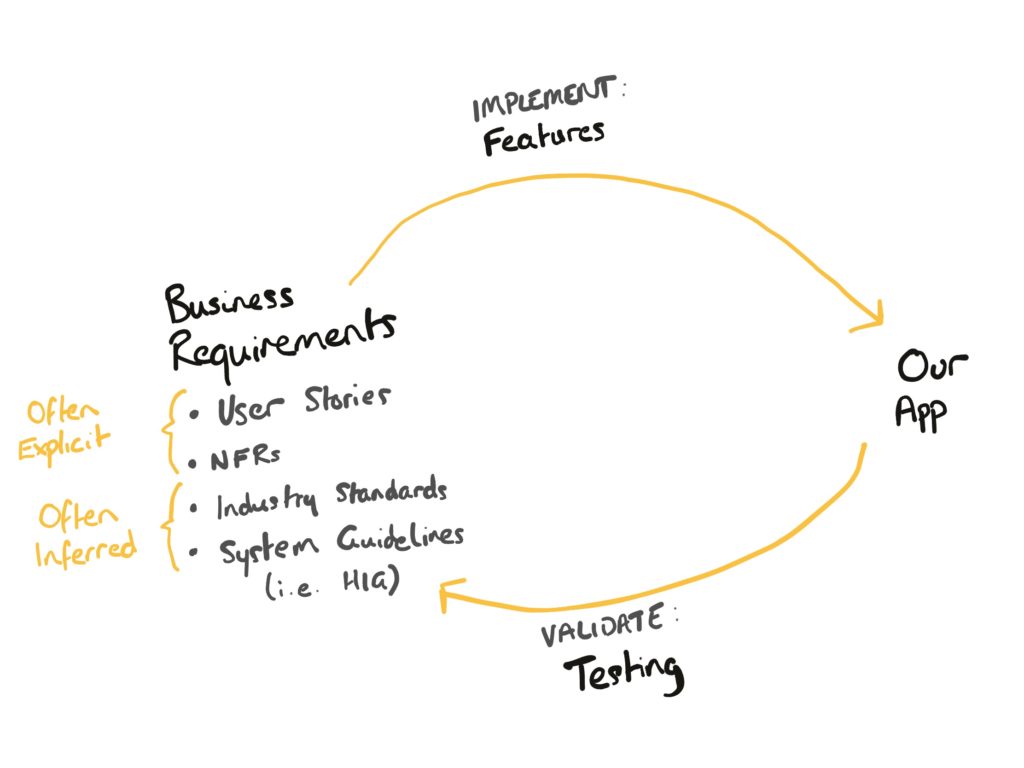 IMPLEMENT:
Features
Business
Requirements
Often
Explicit
• User Stories
• NFRs
Often
Inferred
• Industry Standards
• System Guidelines
(i.e. HIG)
Our
App
VALIDATE:
Testing